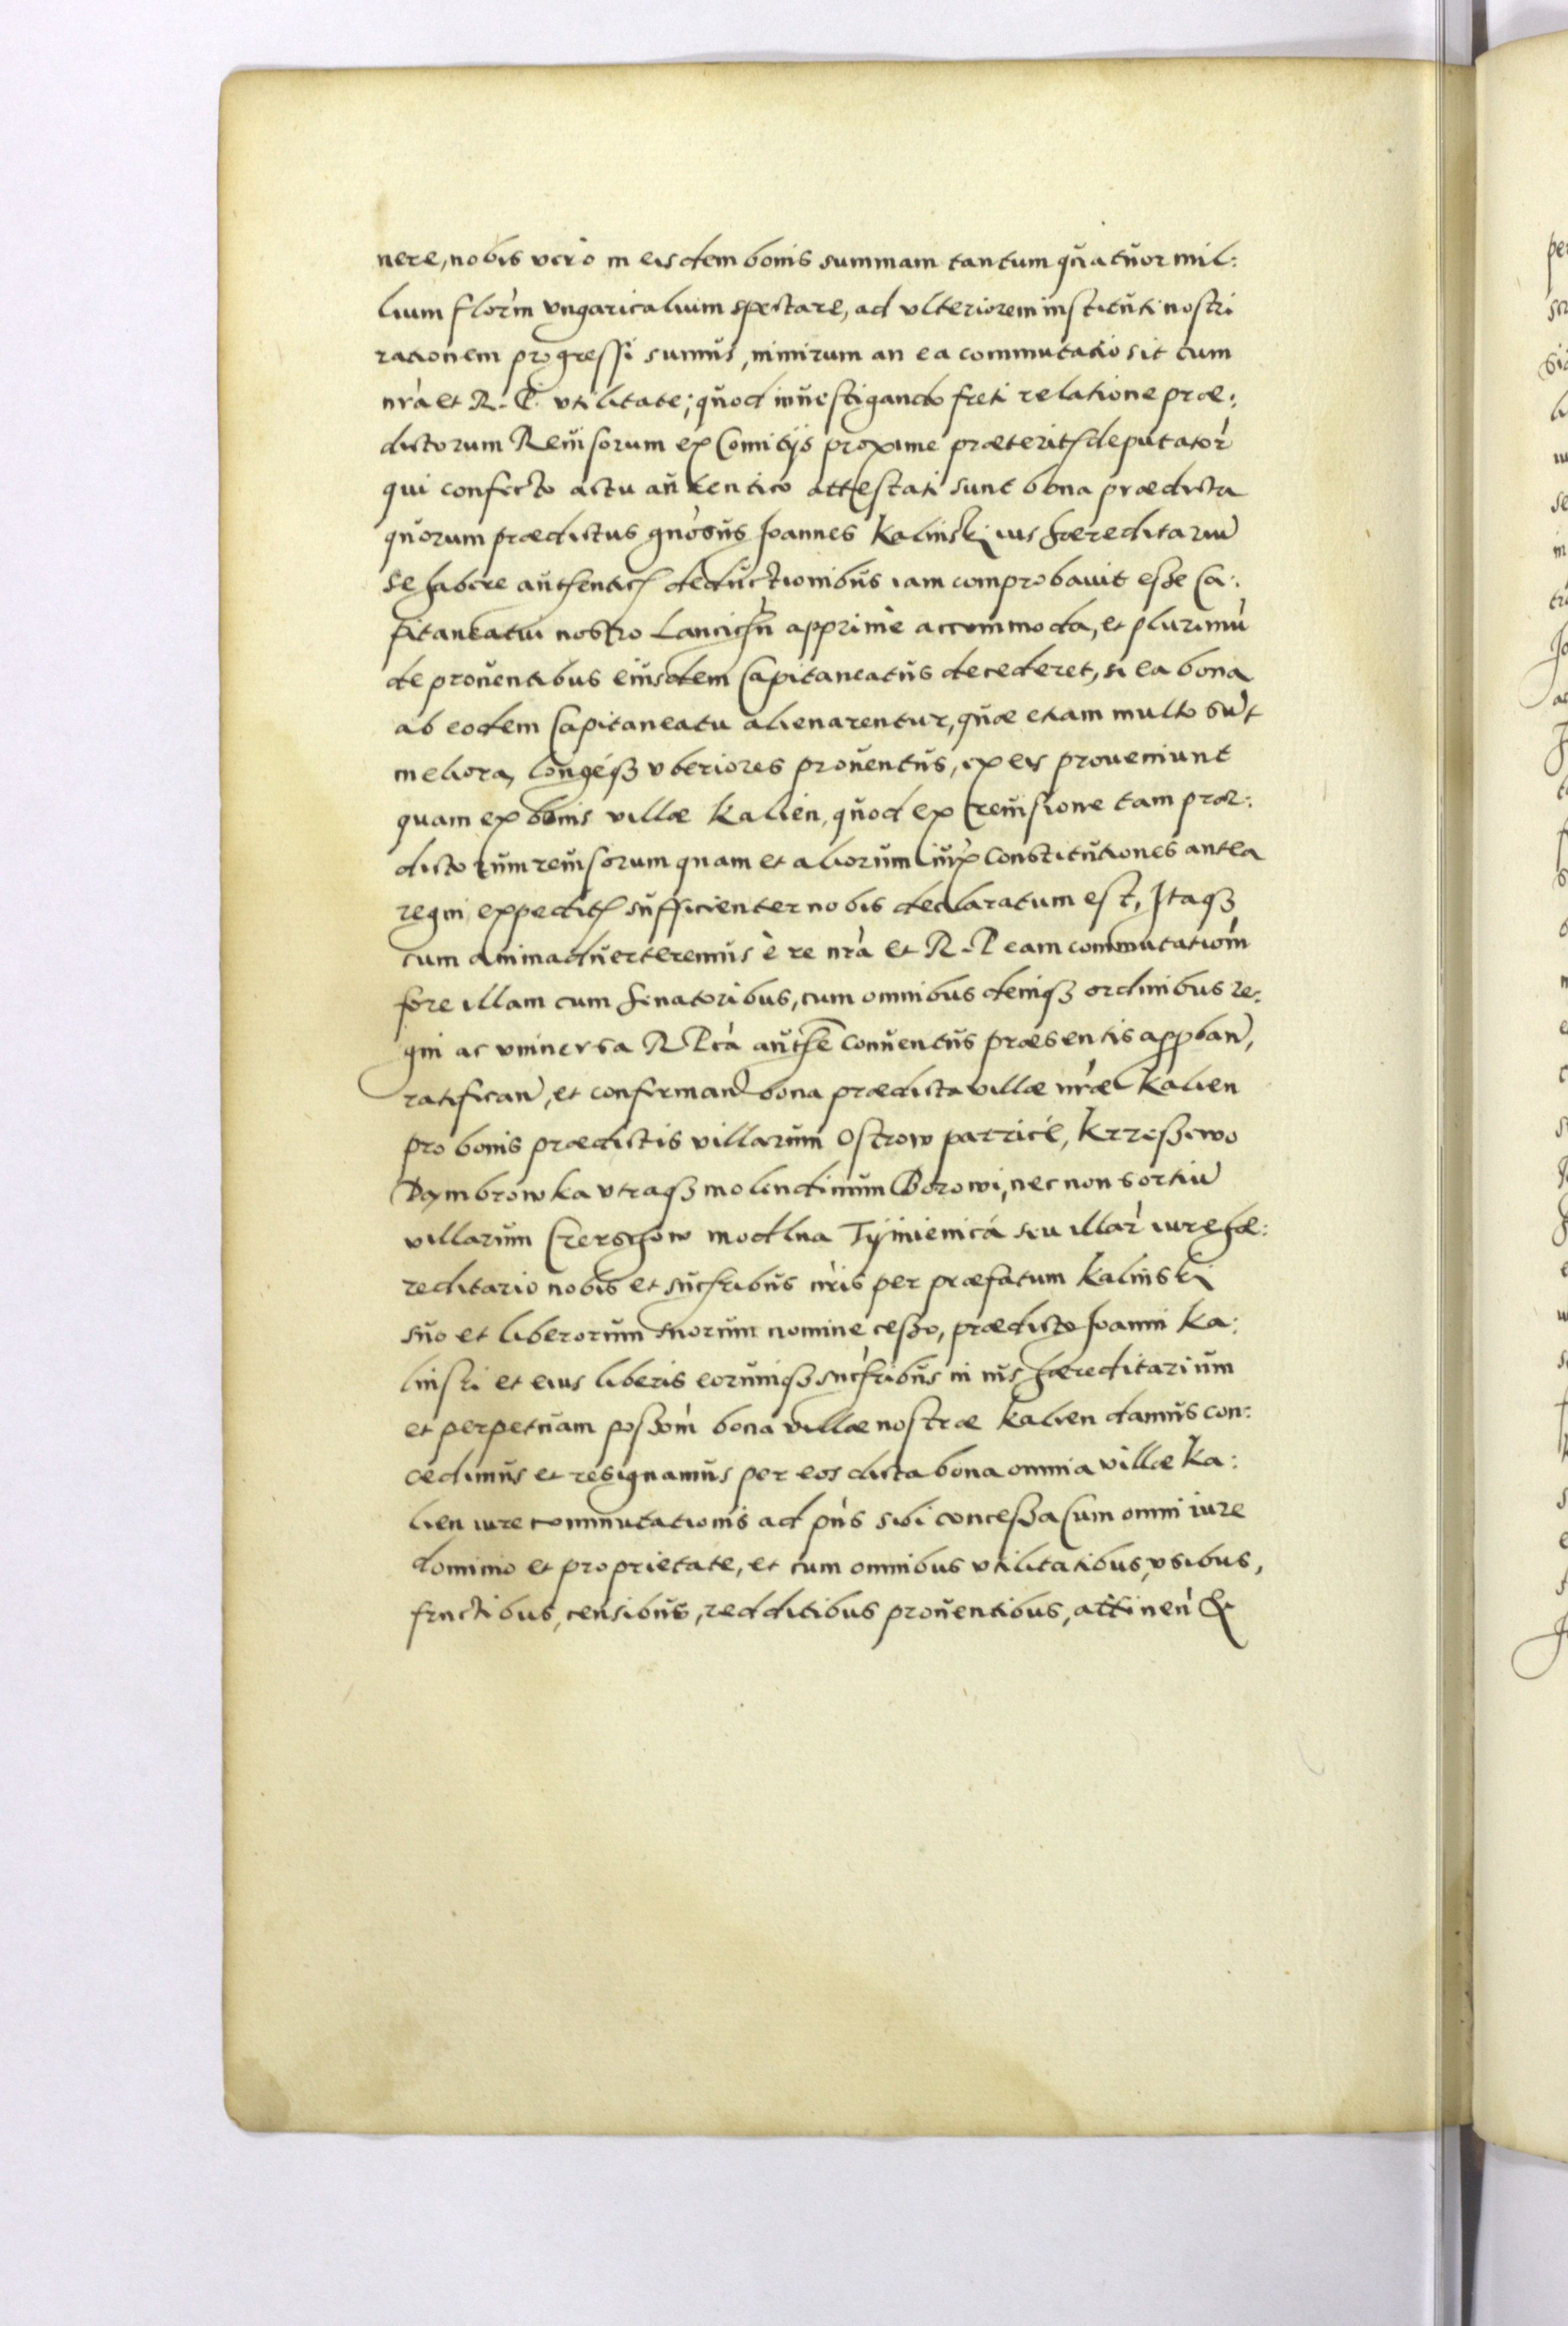 nere, nobis vero in eisdem bonis summam tantum quatuor mil:
lium flor̀m vngaricalium spectare, ad vlteriorem instituti nostri
rationem progressi sumus, nimirum an ea commutatio sit cum
nr̀a et R. P. vtilitate; quod inuestigando freti relatione præ:
dictorum Reuisorum ex Comitijs proxime præteritis deputator̀
qui confecto actu autentico attestati sunt bona prædicta
quorum prædictus gǹosus Joannes Kalinskj ius hæreditariu̇
se habere authenticis deductionibus iam comprobauit esse Ca:
pitaneatui nostro Lancicień apprime accommoda, et plurimu̇
de prouentibus eiusdem Capitaneatus decederet, si ea bona
ab eodem Capitaneatu alienarentur, quæ etiam multo su̇t
meliora, longéqȝ vberiores prouentus, ex eis proueniunt
quam ex bonis villæ Kalien, quod ex reuisione tam præ:
dictorum reuisorum quam et aliorum iux̀ Constitutiones antea
regni expeditis sufficienter nobis declaratum est, Itaqȝ
cum animaduerteremus è re nr̀a et R. P eam commutatiom̀
fore illam cum Senatoribus, cum omnibus deniqȝ ordinibus re:
gni ac vniuersa R Pcà authe Conuentus præsentis appbaǹ,
ratificaǹ, et confirmaǹ bona prædicta villæ nr̀æ Kalien
pro bonis prædictis villarum Ostrow patricè, Krzeszewo
Dąmbrowka vtraqȝ molendinum Borowi, nec non sortiu̇
villarum Czerschow modlna Tijmienicá seu illar̀ iure hæ:
reditario nobis et sucbribus nr̀is per præfatum Kalinskj
suo et liberorum suorum nomine cesso, prædicto Joanni Ka:
linski et eius liberis eorumqȝ sucb̀ribus in ius hæreditarium
et perpetuam possom̀ bona villæ nostræ Kalien damus con:
cedimus et resignamus per eos dicta bona omnia villæ Ka:
lien iure commutationis ad pǹs sibi concessa cum omni iure
dominio et proprietate, et cum omnibus vtilitatibus, vsibus,
fructibus, censibus, redditibus prouentibus, attineǹ &